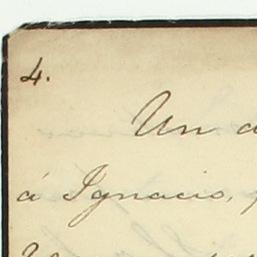 4.
Un
á Ignacio,